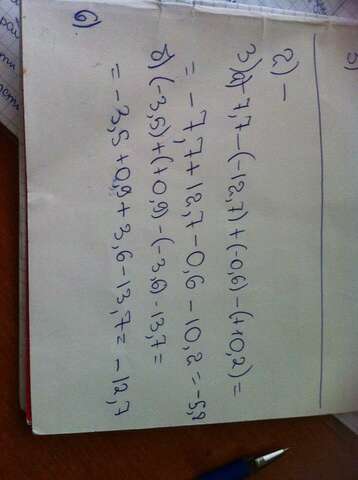 5)
2) –
3)а) -7,7-(-12,7)+(-0,6)-(+10,2)=
= -7,7+12,7-0,6-10,2=-5,8
б) (-3,5)+(+0,9)-(-3,6)-13,7=
= -3,5+0,9+3,6-13,7=-12,7
6)